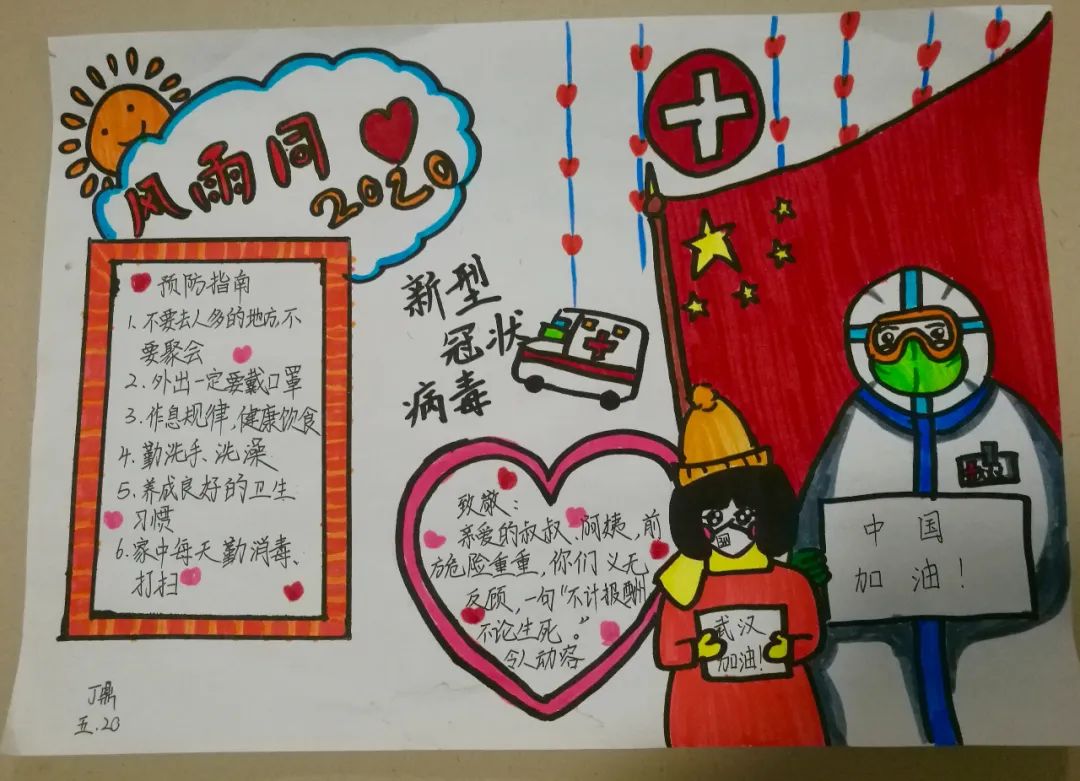 风雨同
2020
预防指南
1、不要去人多的地方,不
要聚会
2、外出一定要戴口罩
3、作息规律,健康饮食
4、勤洗手、洗澡
5、养成良好的卫生
习惯
6、家中每天勤消毒、
打扫
丁鼎
五.20
新型
冠状
病毒
致敬:
亲爱的叔叔、阿姨,前
方危险重重,你们义无
反顾,一句“不计报酬
不论生死。”
令人动容
武汉
加油!
中国
加油!